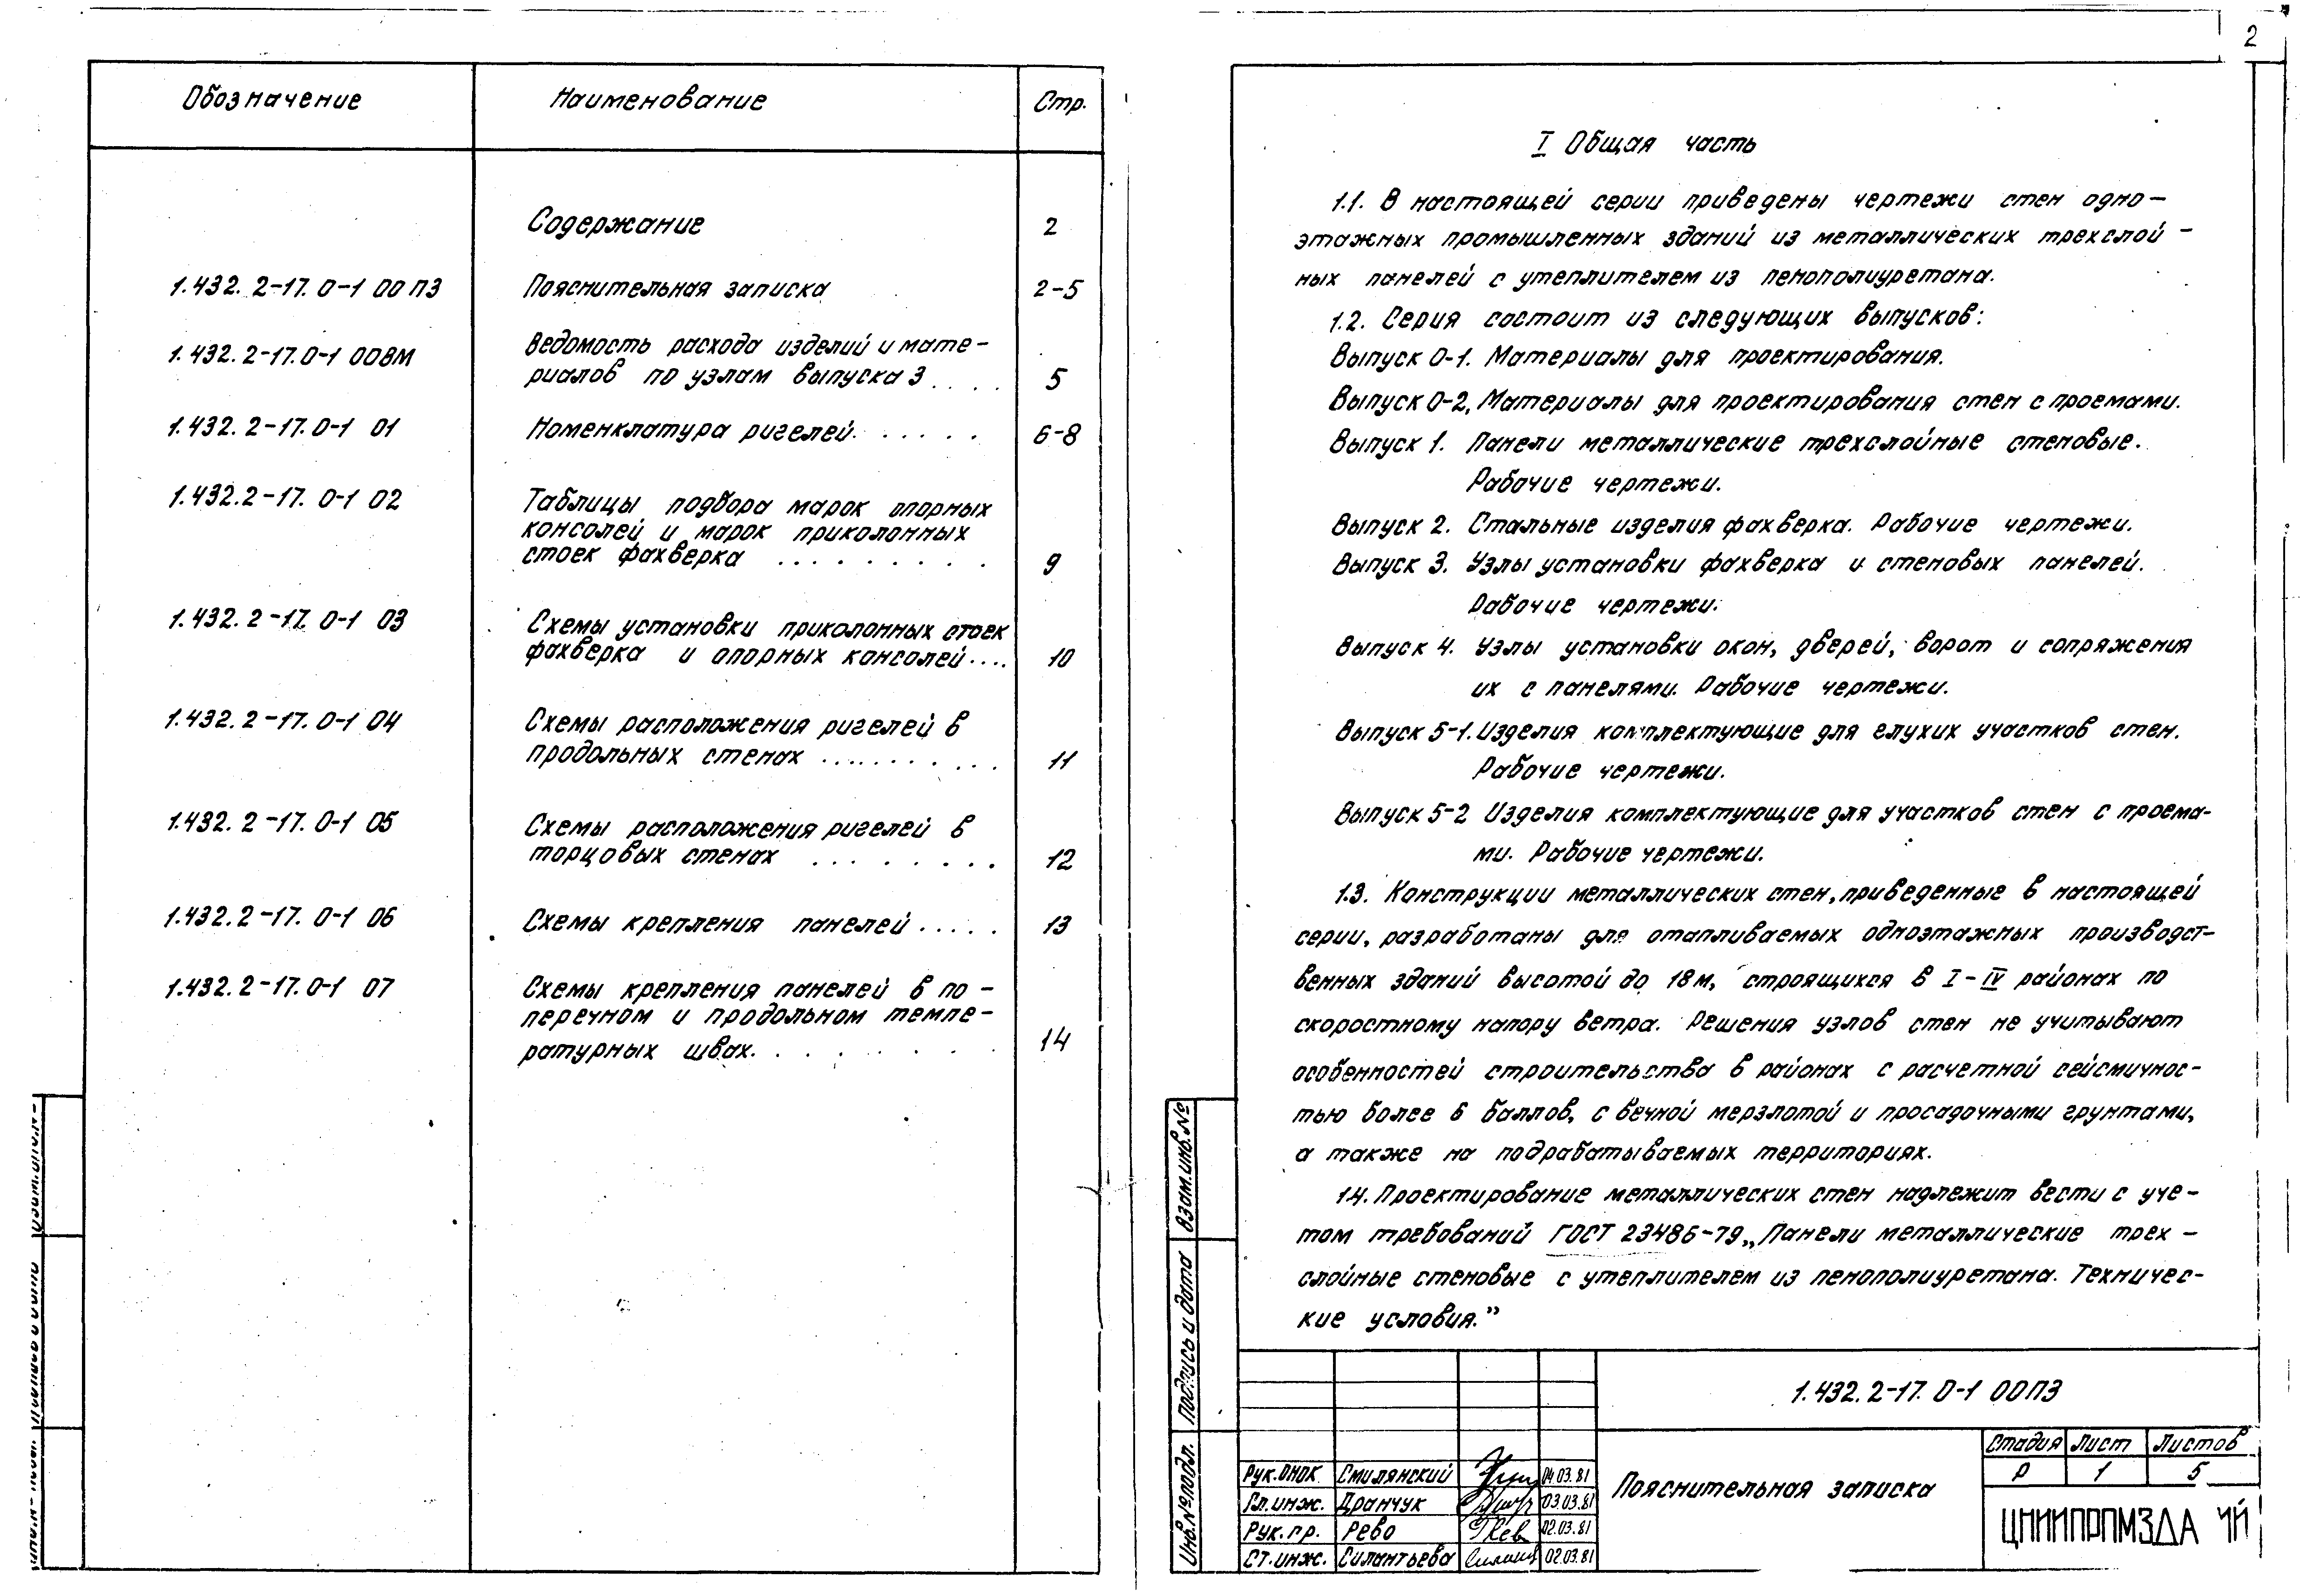 2
Обозначение Наименование Стр.
Содержание 2
1.432.2-17.0-1 00ПЗ Пояснительная записка 2-5
1.432.2-17.0-1 00ВМ Ведомость расхода изделий и мате-
риалов по узлам выпуска 3 .... 5
1.432.2-17.0-1 01 Номенклатура ригелей. ..... 6-8
1.432.2-17.0-1 02 Таблицы подбора марок опорных
консолей и марок приколонных
стоек фахверка ......... 9
1.432.2-17.0-1 03 Схемы установки приколонных стоек
фахверка и опорных консолей.... 10
1.432.2-17.0-1 04 Схемы расположения ригелей в
продольных стенах .......... 11
1.432.2-17.0-1 05 Схемы расположения ригелей в
торцовых стенах ........ 12
1.432.2-17.0-1 06 Схемы крепления панелей ..... 13
1.432.2-17.0-1 07 Схемы крепления панелей в по-
перечном и продольном темпе-
ратурных швах. ....... 14
I Общая часть
1.1. В настоящей серии приведены чертежи стен одно-
этажных промышленных зданий из металлических трехслой-
ных панелей с утеплителем из пенополиуретана.
1.2. Серия состоит из следующих выпусков:
Выпуск 0-1. Материалы для проектирования.
Выпуск 0-2. Материалы для проектирования стен с проемами.
Выпуск 1. Панели металлические трехслойные стеновые.
Рабочие чертежи.
Выпуск 2. Стальные изделия фахверка. Рабочие чертежи.
Выпуск 3. Узлы установки фахверка и стеновых панелей.
Рабочие чертежи.
Выпуск 4. Узлы установки окон, дверей, ворот и сопряжения
их с панелями. Рабочие чертежи.
Выпуск 5-1. Изделия комплектующие для глухих участков стен.
Рабочие чертежи.
Выпуск 5-2 Изделия комплектующие для участков стен с проема-
ми. Рабочие чертежи.
1.3. Конструкции металлических стен, приведенные в настоящей
серии, разработаны для отапливаемых одноэтажных производст-
венных зданий высотой до 18м, строящихся в I-IV районах по
скоростному напору ветра. Решения узлов стен не учитывают
особенностей строительства в районах с расчетной сейсмичнос-
тью более 6 баллов, с вечной мерзлотой и просадочными грунтами,
а также на подрабатываемых территориях.
1.4. Проектирование металлических стен надлежит вести с уче-
том требований ГОСТ 23486-79 „Панели металлические трех-
слойные стеновые с утеплителем из пенополиуретана. Техничес-
кие условия.”
Взам.инв.№
Подпись и дата
Инв.№подл.
1.432.2-17.0-1 00ПЗ
Рук.ОМОК Смилянский 04.03.81
Гл.инж. Дранчук 03.03.81
Рук.гр. Рево 02.03.81
Ст.инж. Силантьева 02.03.81
Пояснительная записка
Стадия Лист Листов
Р 1 5
ЦНИИПРОМЗДАНИЙ